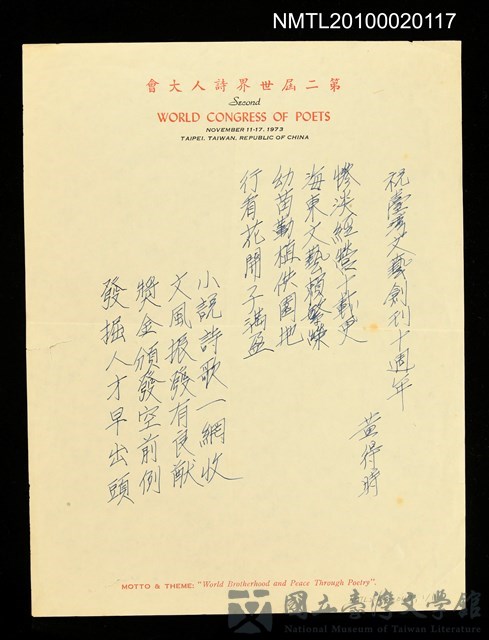 NMTL20100020117
會大人詩界世屆二第
Second
WORLD CONGRESS OF POETS
NOVEMBER 11-17, 1973
TAIPEI, TAIWAN, REPUBLIC OF CHINA
祝臺灣文藝創刊十週年
黃得時
慘淡經營十載更
海東文藝賴繁榮
幼苗勤植供園地
行看花開子滿盈
小說詩歌一網收
文風振發有良猷
獎金頒發空前例
發掘人才早出頭
MOTTO & THEME: "World Brotherhood and Peace Through Poetry".
國立臺灣文學館
National Museum of Taiwan Literature